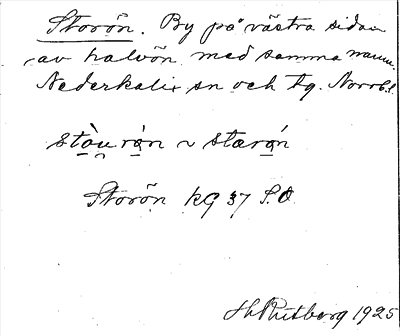 Storön. By på västra sidan
av halvön med samma namn.
Nederkalix sn och tg. Norrb.l.
sto̱u̯ rọ́n ~ starọ́n
Storön KG 37 S.O
1925